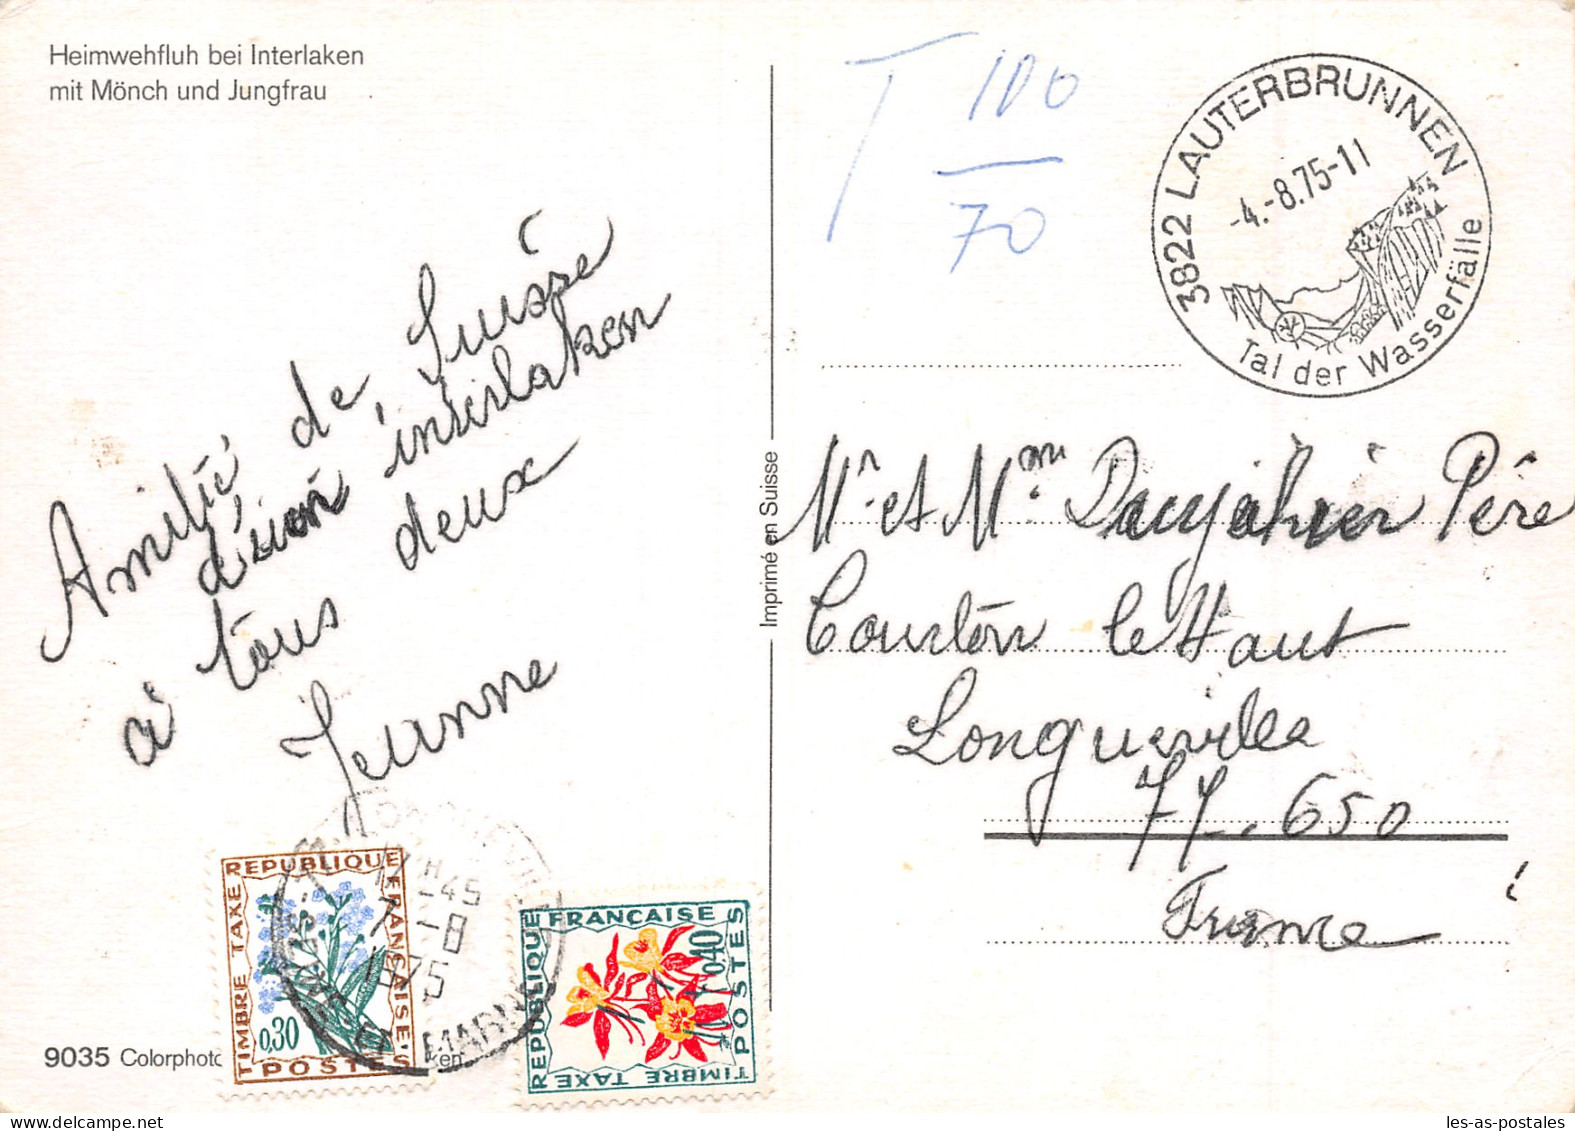 Heimwehfluh bei Interlaken
mit Mönch und Jungfrau
T 100
70
3822 LAUTERBRUNNEN
-4.-8.75-11
Tal der Wasserfälle
Amitié de Suisse
d'interlaken
à tous deux
Jeanne
Imprimé en Suisse
Mr et Mme Père
Courton le Haut
Longueville
77.650
France
REPUBLIQUE FRANÇAISE
TIMBRE TAXE
0,30
POSTES
17 H -45
7 -8
1975
SEINE ET MARNE
REPUBLIQUE FRANÇAISE
0,40
POSTES
TIMBRE TAXE
9035 Colorphoto
ken
les-as-postales